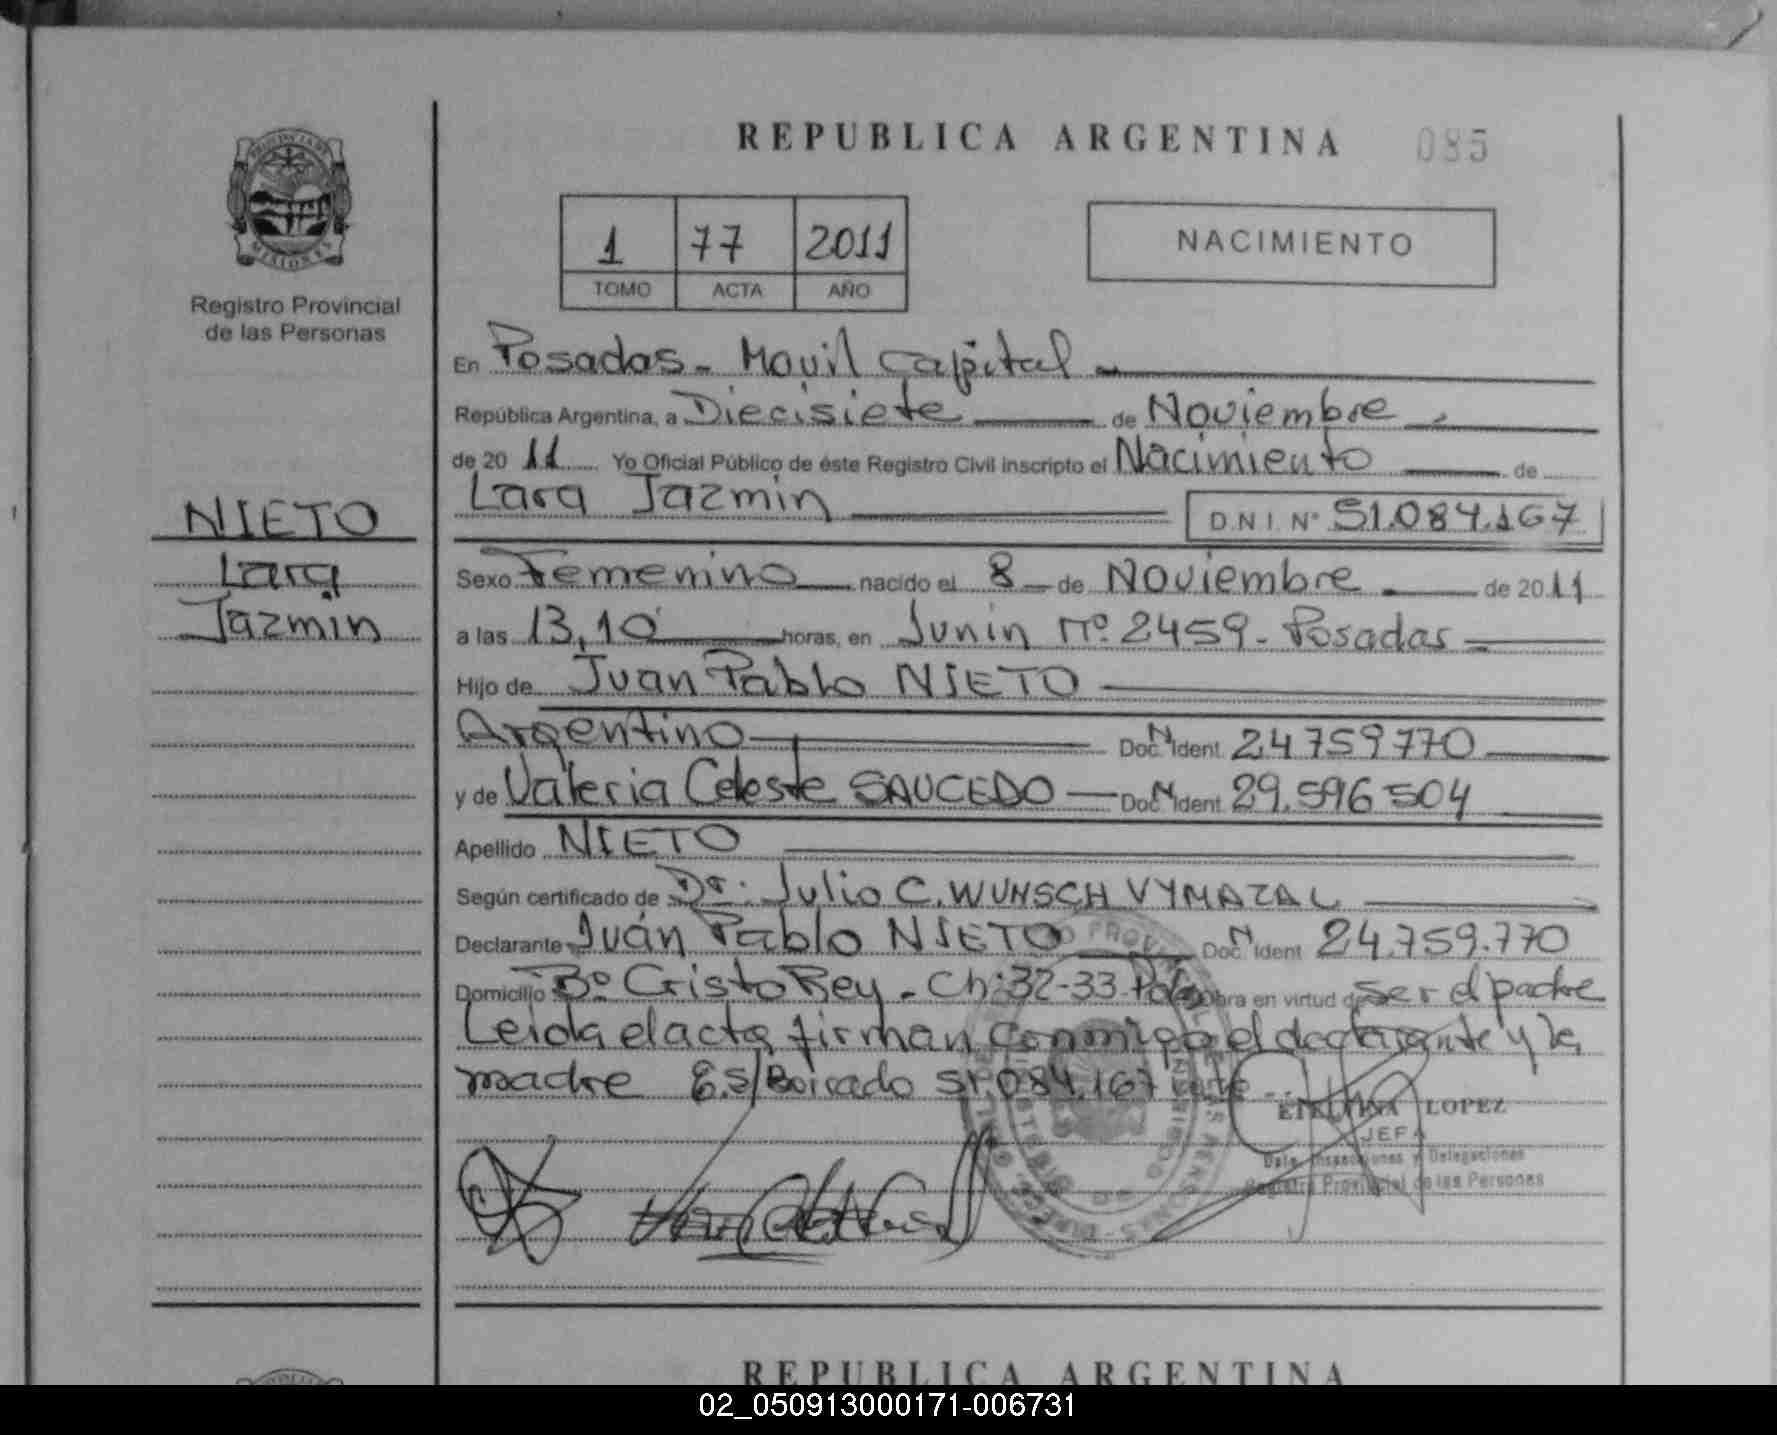 REPUBLICA ARGENTINA 085
PROVINCIA DE
MISIONES
Registro Provincial
de las Personas
1 77 2011
TOMO ACTA AÑO
NACIMIENTO
En Posadas - Movil Capital
República Argentina, a Diecisiete de Noviembre
de 20 11 Yo Oficial Público de éste Registro Civil inscripto el Nacimiento de
Lara Jazmin D.N.I. Nº 51.084.167
NIETO
Lara
Jazmin
Sexo Femenino nacido el 8 de Noviembre de 2011
a las 13,10 horas, en Junin nº 2459 - Posadas
Hijo de Juan Pablo NIETO
Argentino Doc. N Ident. 24.759.770
y de Valeria Celeste SAUCEDO Doc. N Ident. 29.596.504
Apellido NIETO
Según certificado de Dr. Julio C. WUNSCH VYMAZAL
Declarante Juán Pablo NIETO Doc. N Ident 24.759.770
Domicilio Bº Cristo Rey - Ch: 32-33 obra en virtud de ser el padre
Leida el acta, firman conmigo el declarante y la
madre E.S/Boirado 51.084.167
LOPEZ
JEFA
Inspecciones y Delegaciones
Registro Provincial de las Personas
REPUBLICA ARGENTINA
02_050913000171-006731